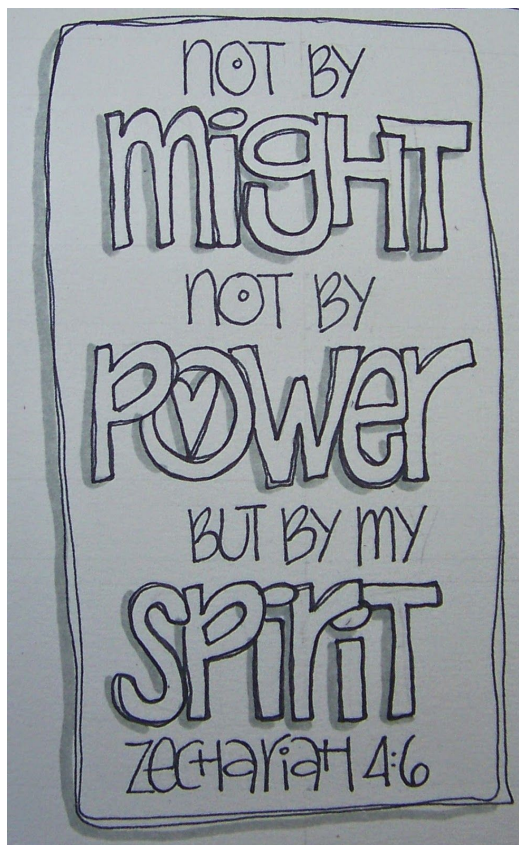 NOT BY
migHT
NOT BY
POWer
BUT BY MY
SPiriT
ZecHariaH 4:6